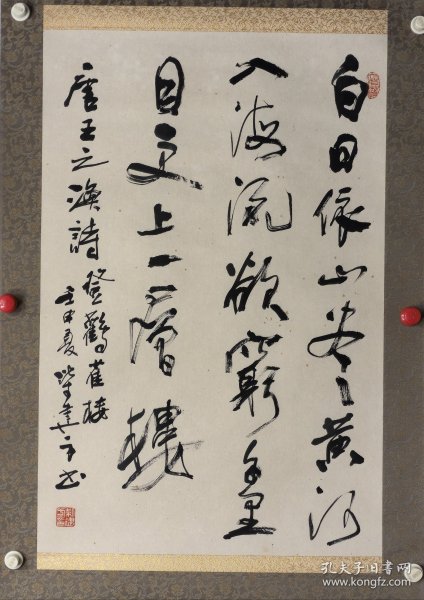 白日依山尽黄河
入海流欲窮千里
目更上一層樓
唐王之渙詩登鸛雀楼
壬申夏
书
孔夫子旧书网
www.kongfz.com